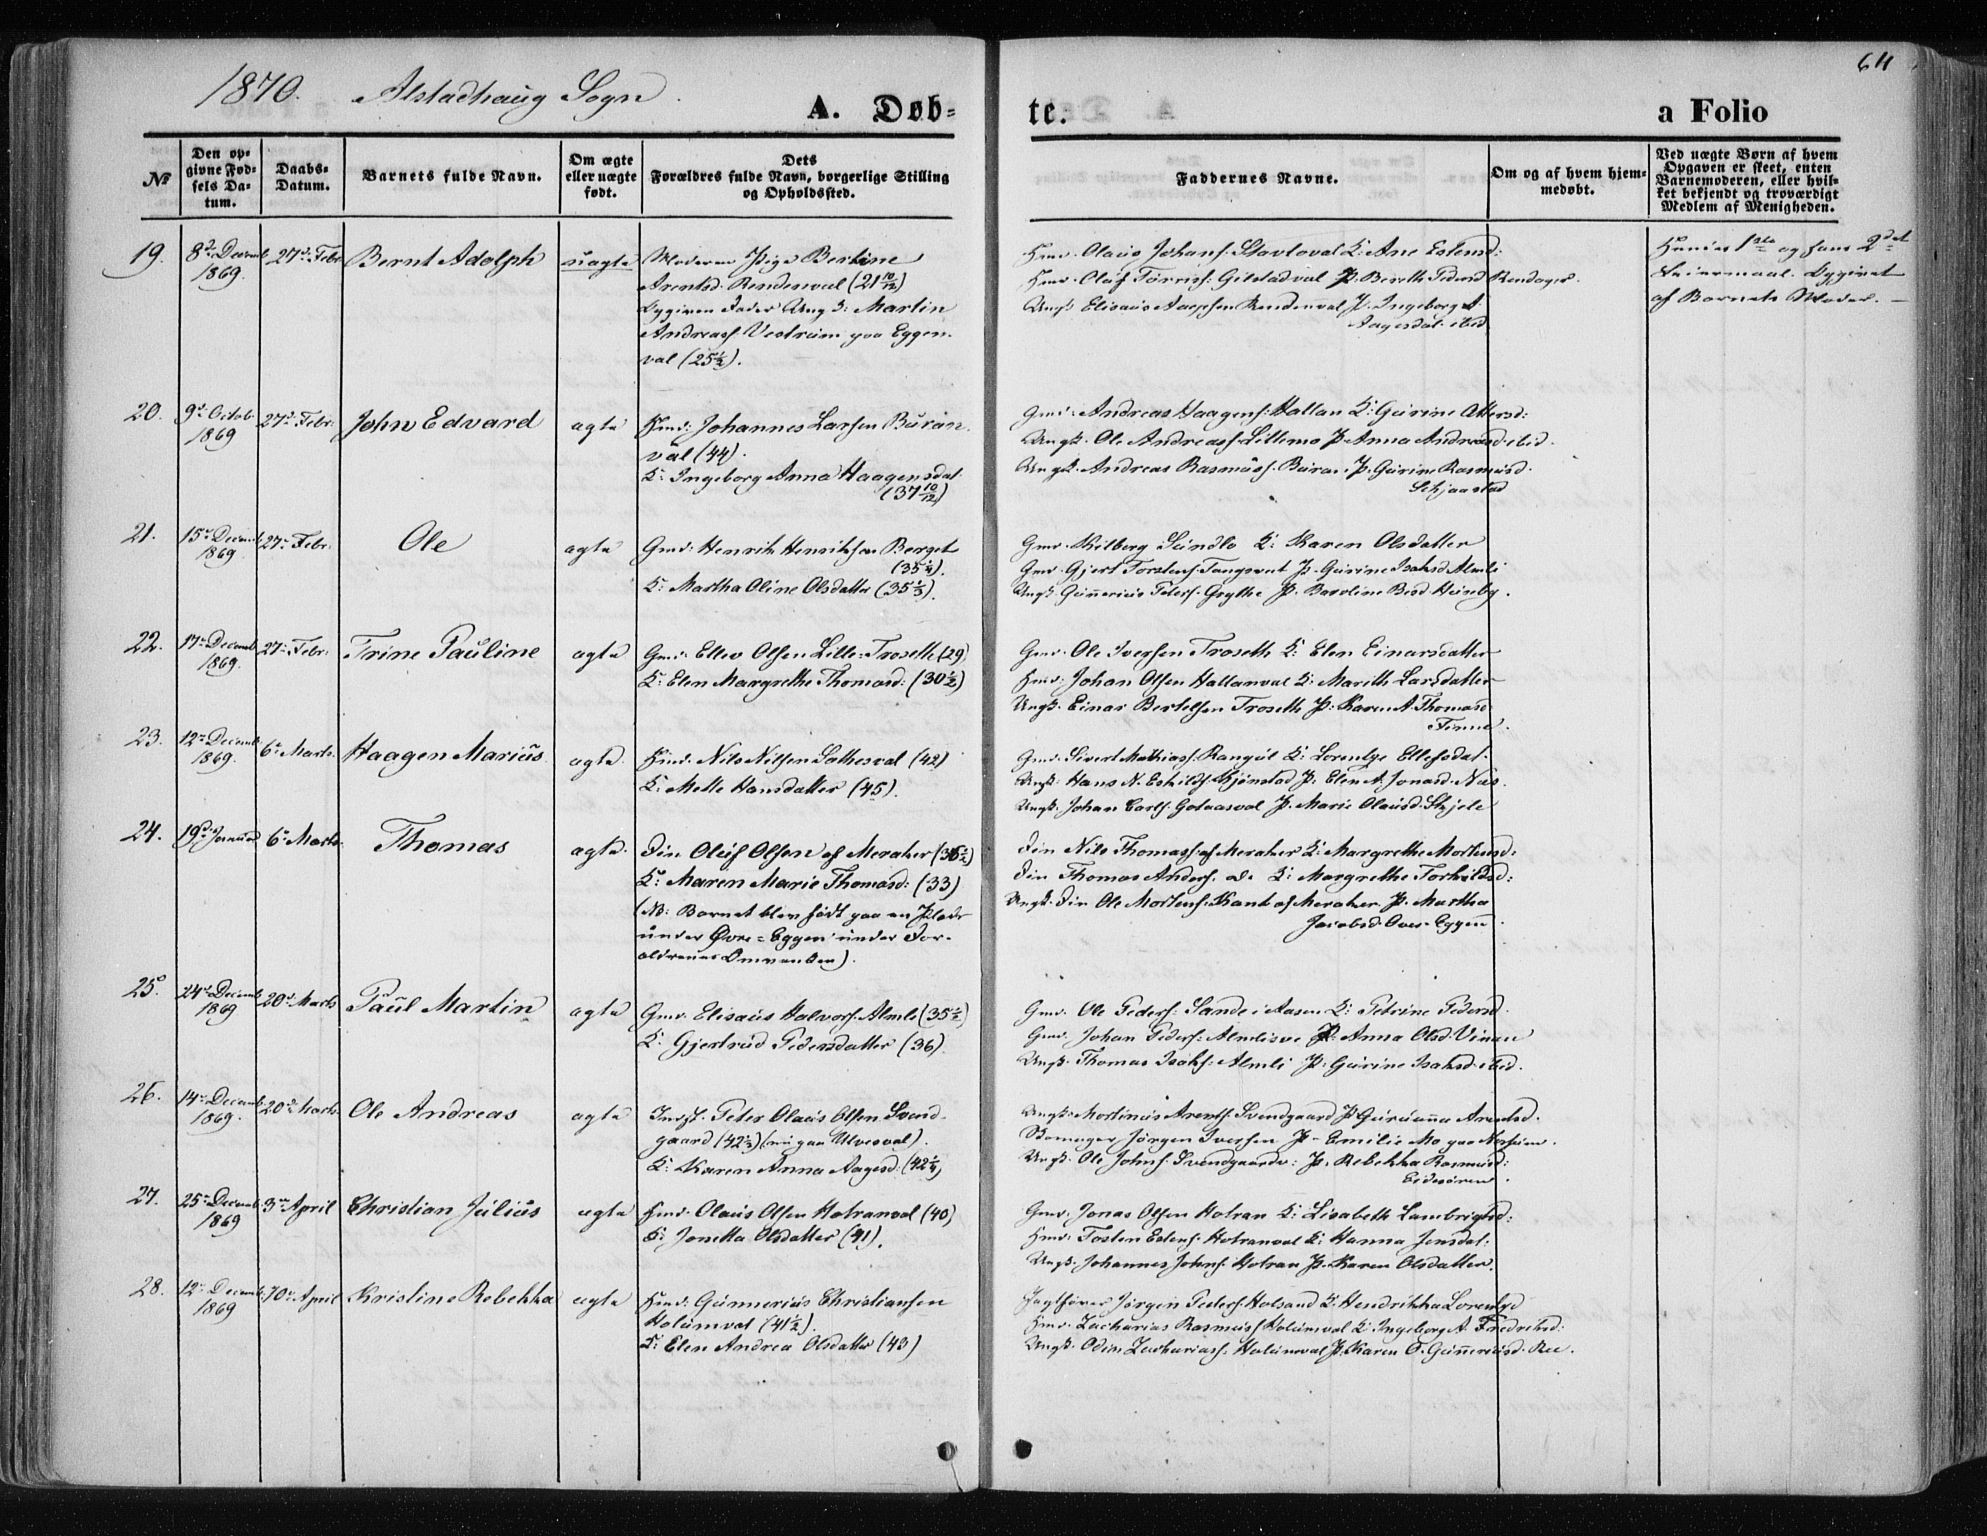 1870. Alstadhaug Sogn.
A. Døb-
te.
a Folio
64
№
Den op-
givne Fød-
sels Da-
tum.
Daabs-
Datum.
Barnets fulde Navn.
Om ægte
eller uægte
født.
Dets
Forældres fulde Navn, borgerlige Stilling
og Opholdssted.
Faddernes Navne.
Om og af hvem hjem-
medøbt.
Ved uægte Børn af hvem
Opgaven er skeet, enten
Barnemoderen, eller hvil-
ket bekjendt og troværdigt
Medlem af Menigheden.
19. 8d Decemb 27d Febr Bernt Adolph uægte Moderen Pige Bertine
1869.
Arentsd: Rendesval (21 10/12)
Opgiven Fader Ung S: Martin
Andreass Vestrum paa Eggen-
val (25½).
Hmd. Olaus Johans. K: Ane Estensd:
Hmd. Oluf Gilstadval P. Bereth Pedersd
Ungk. Elisæus P: Ingeborg A.
Aagesdat. ibid.
Hendes 1ste og hans 2det
Leiermaal. Opgivet
af Barnets Moder. —
20. 9d Octob. 27d Febr. John Edvard ægte Hmd: Johannes Larsen Buran-
1869
val (44).
K: Ingeborg Anna Haagensdat.
(37 10/12)
Gmd: Andreas Haagens. Hallan K: Gurine
Ungk. Ole Andreass Lillemo P. Anna Andreasd. ibid.
Ungk. Andreas Rasmuss. Buran P. Gurine Rasmusd.
21. 15d Decemb 27d Febr. Ole ægte Gmd: Henrik Henriksen Berget
1869
(35¼).
K: Martha Oline Olsdatter (35⅓).
Gmd. Sundlo K: Karen Olsdatter
Gmd. Gjert Torstens. P. Gurine Isaksd Almli
Ungk. Gunnerius Peters. Grythe P.
22. 17d Decemb 27d Febr. Trine Pauline ægte Gmd: Ellev Olsen Lille-Troseth (29)
1869.
K: Elen Margrethe Thomasd: (30½)
Gmd. Ole Iversen Troseth K: Elen Einarsdatter
Hmd. Johan Olsen Hallanval K: Marith Larsdatter
Ungk. Einar Bertelsen Troseth P: Karen A. Thomasd
23. 12d Decemb. 6d Marts. Haagen Marius ægte. Hmd. Nils Nilsen (42)
1869.
K: Mette Hansdatter (45).
Gmd. Sivert Mathiass. K: Lorentze Ellefsdat.
Ungk. Hans N. Eskilds. P: Elen A. Jonasd. Næs.
Ungk. Johan Carls. P. Marie Olausd. Skjele
24. 19d Januar 6d Marts. Thomas ægte. Fin Oluf Olsen af Meraker
K: Maren Marie Thomasd: (33)
(NB: Barnet blev født paa en Plads
under Øvre-Eggen under For-
ældrenes Omvanken).
Fin Nils Thomass af Meraker K: Margrethe Mortensd.
Fin Thomas Anders. K: Margrethe Torkildsd:
Ungk. Fin Ole Mortens. af Meraker P. Martha
Jacobsd. Over-Eggen
25. 24d Decemb 20d Marts Paul Martin ægte Gmd. Elisæus Halvors. Almli (35½)
1869
K: Gjertrud Pedersdatter (36).
Gmd. Ole Peders. Sande i Aasen K: Petrine Pedersd.
Gmd. Johan Peders. P: Anna Olsd.
Ungk. Thomas Isaks. Almli P: Gurine Isaksd. ibid.
26. 14d Decemb. 20d Marts. Ole Andreas ægte Indst. Peter Olaus Olsen Svend-
1869.
gaard (42⅓) (nu paa Ulvesval).
K: Karen Anna Aagesd: (42¼)
Ungk. Mortinus Arents. Svendgaard P. Arentsd.
Jørgen Iversen P. Emilie Mo paa
Ungk. Ole Johns. P: Rebekka Rasmusd:
27. 25d Decemb 3d April Christian Julius ægte Hmd. Olaus Olsen Hotranval (40)
1869
K: Jonetta Olsdatter (41).
Gmd. Jonas Olsen Hotran K: Lisabeth Lambrigtsd:
Hmd. Tosten Estens. Hotranval K: Hanna Jensdat.
Ungk. Johannes Johns. Hotran P. Karen Olsdatter.
28. 12d Decemb. 10d April Kristine Rebekka ægte Hmd: Gunnerius Christiansen
1869
Holumval (41½).
K: Elen Andrea Olsdatter (43)
Jørgen Peders. Holsand K: Hendrikka Lorentsd
Hmd. Zacharias Rasmuss Holumsval K: Ingeborg A. Fredriksd:
Ungk. Odin Zachariass. Holumval P. Karen O. Gunneriusd. Ree.